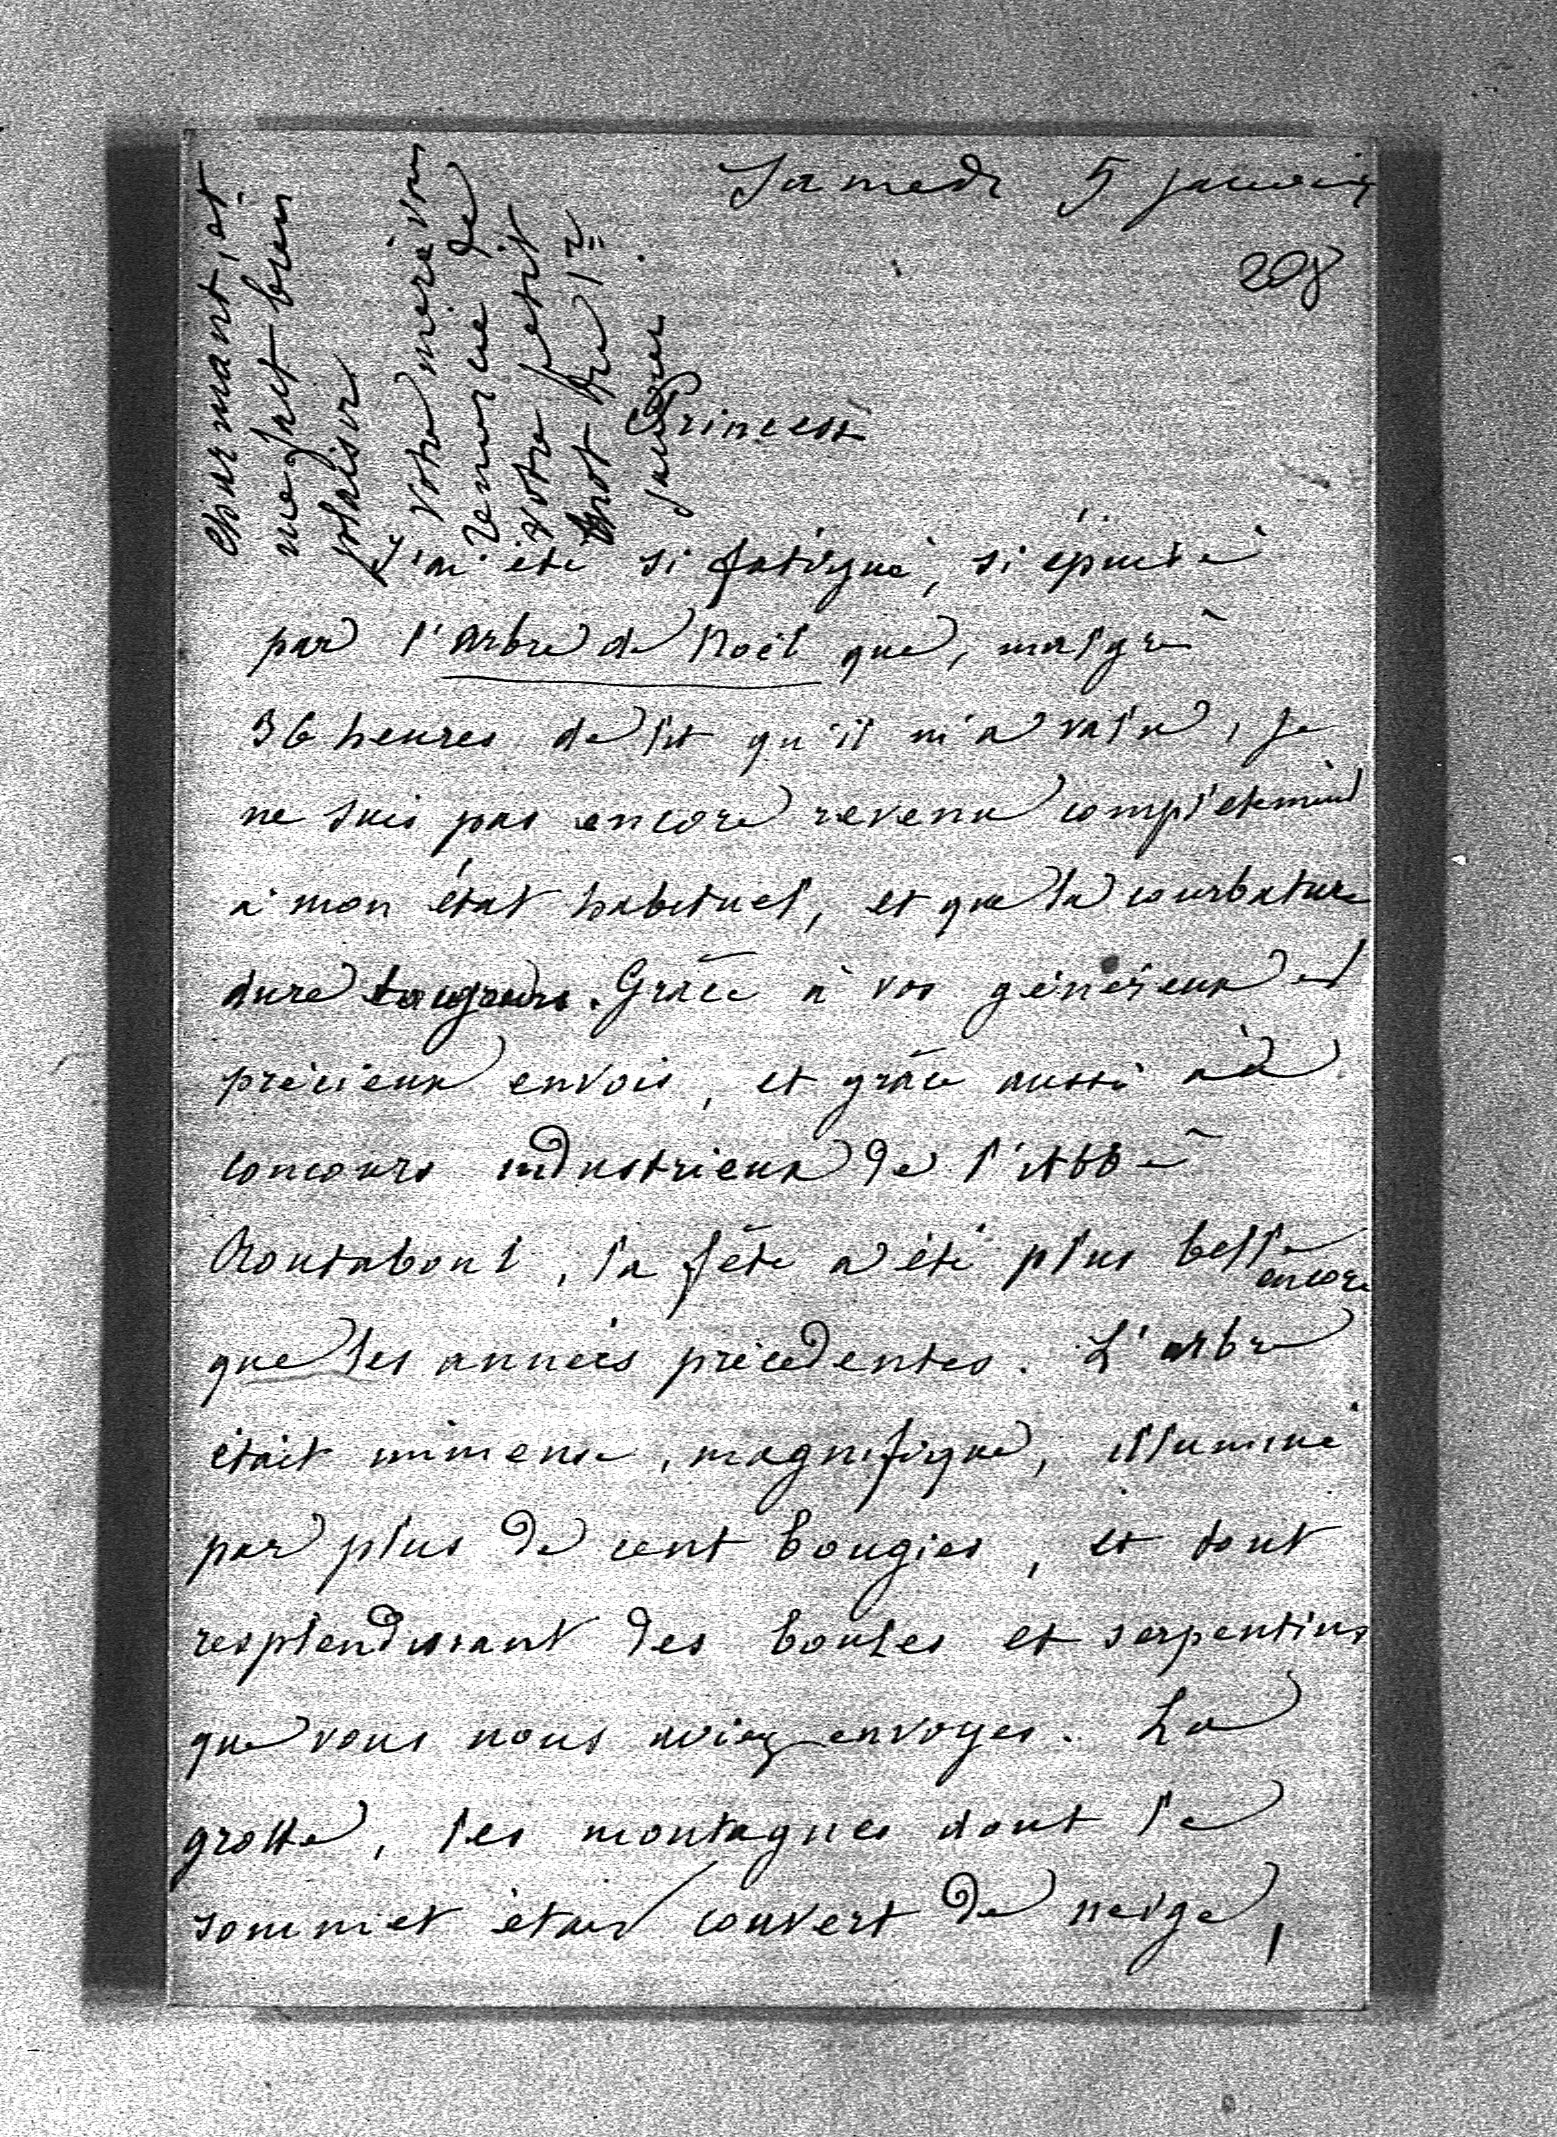 Samedi 5 janvier
208
Princesse
J'ai été si fatigué, si épuisé
par l'arbre de Noël que, malgré
36 heures de lit qu'il m'a valu, je
ne suis pas encore revenu complètement
à mon état habituel, et que la courbature
dure toujours. Grâce à vos généreux et
précieux envois, et grâce aussi au
concours industrieux de l'abbé
la fête a été plus belle
encore
que les années précédentes. L'arbre
était immense, magnifique, illuminé
par plus de cent bougies, et tout
resplendissant des boules et serpentins
que vous nous aviez envoyés. La
grotte, les montagnes dont le
sommet était couvert de neige,
charmant, et
me fait bien
plaisir
Votre mère vous
remercie de
votre petit
mot du 1er
janvier.